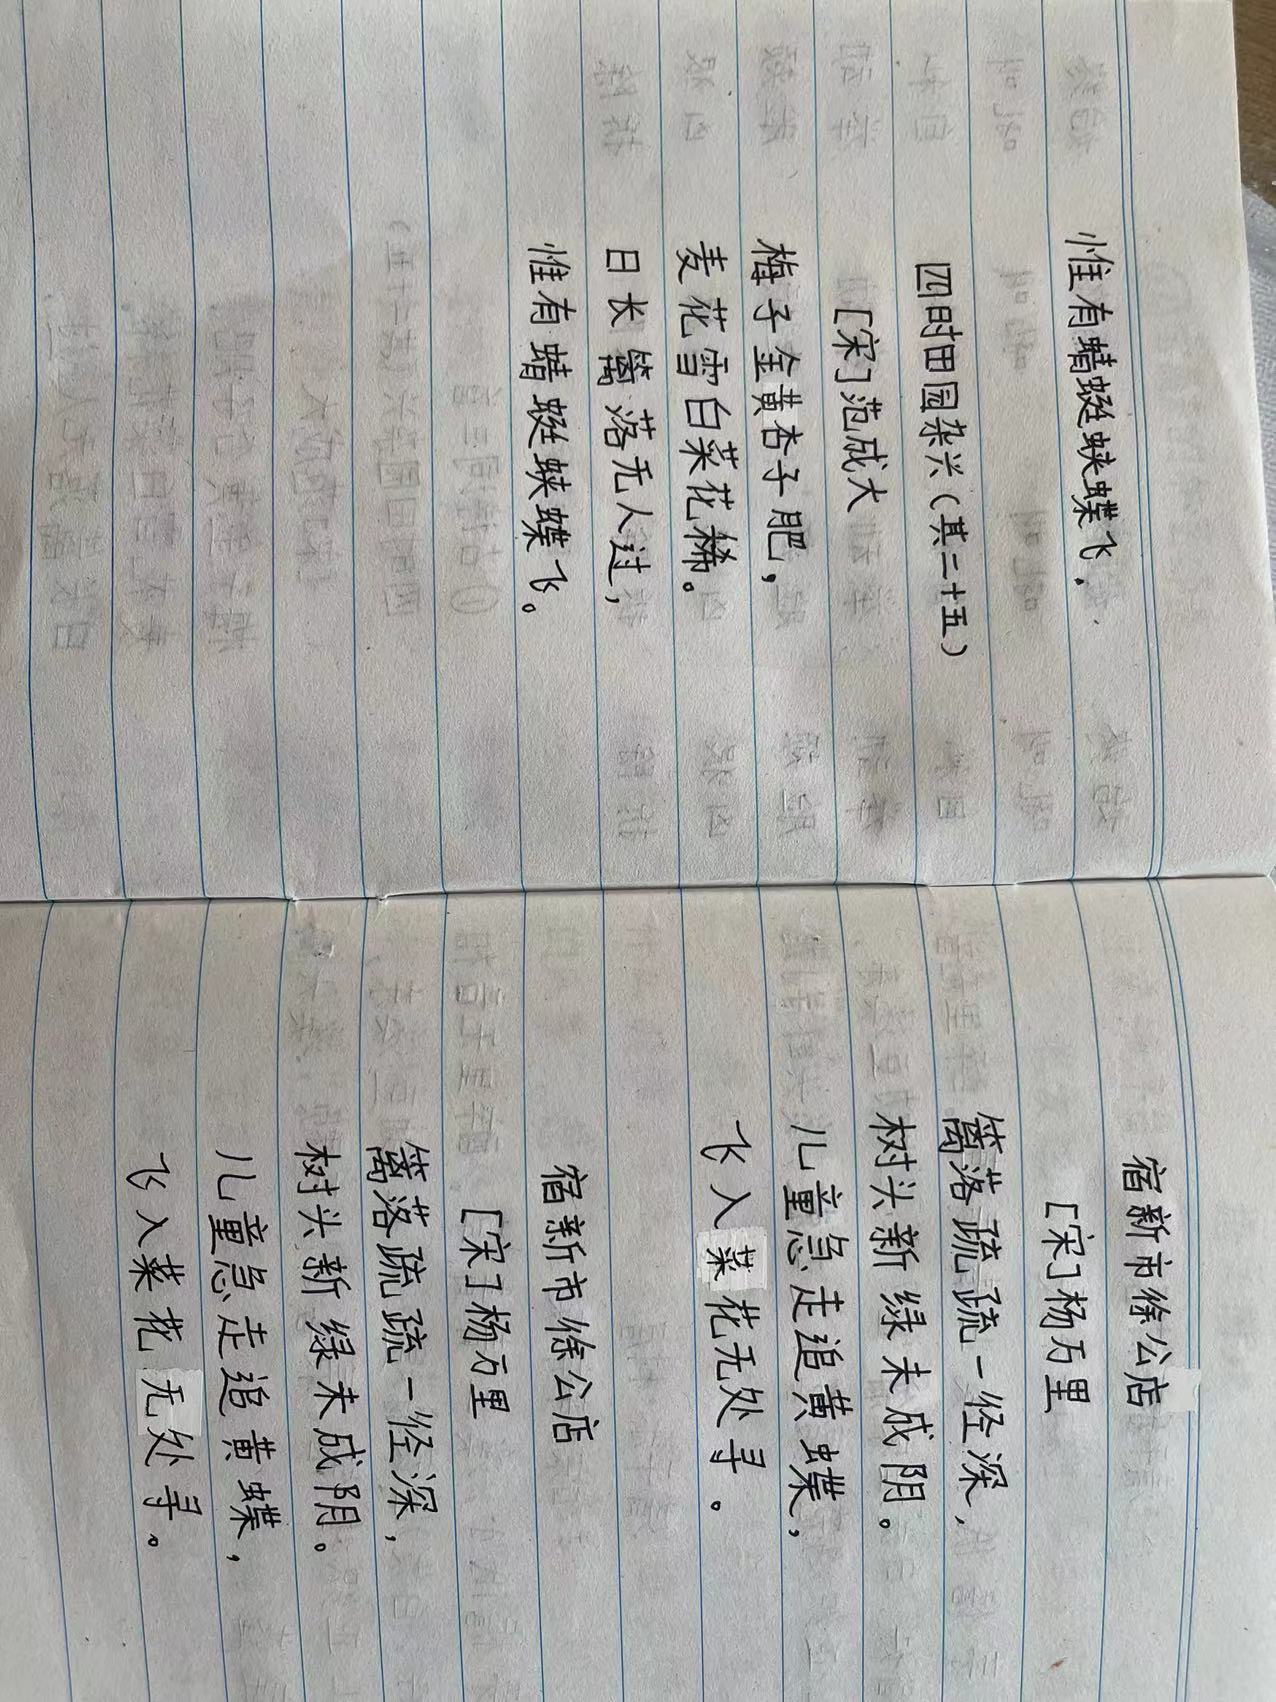 惟有蜻蜓蛱蝶飞.
四时田园杂兴(其二十五)
[宋]范成大
梅子金黄杏子肥,
麦花雪白菜花稀。
日长篱落无人过,
惟有蜻蜓蛱蝶飞。
宿新市徐公店
[宋]杨万里
篱落疏疏一径深,
树头新绿未成阴。
儿童急走追黄蝶,
飞入菜花无处寻。
宿新市徐公店
[宋]杨万里
篱落疏疏一径深,
树头新绿未成阴。
儿童急走追黄蝶,
飞入菜花无处寻。